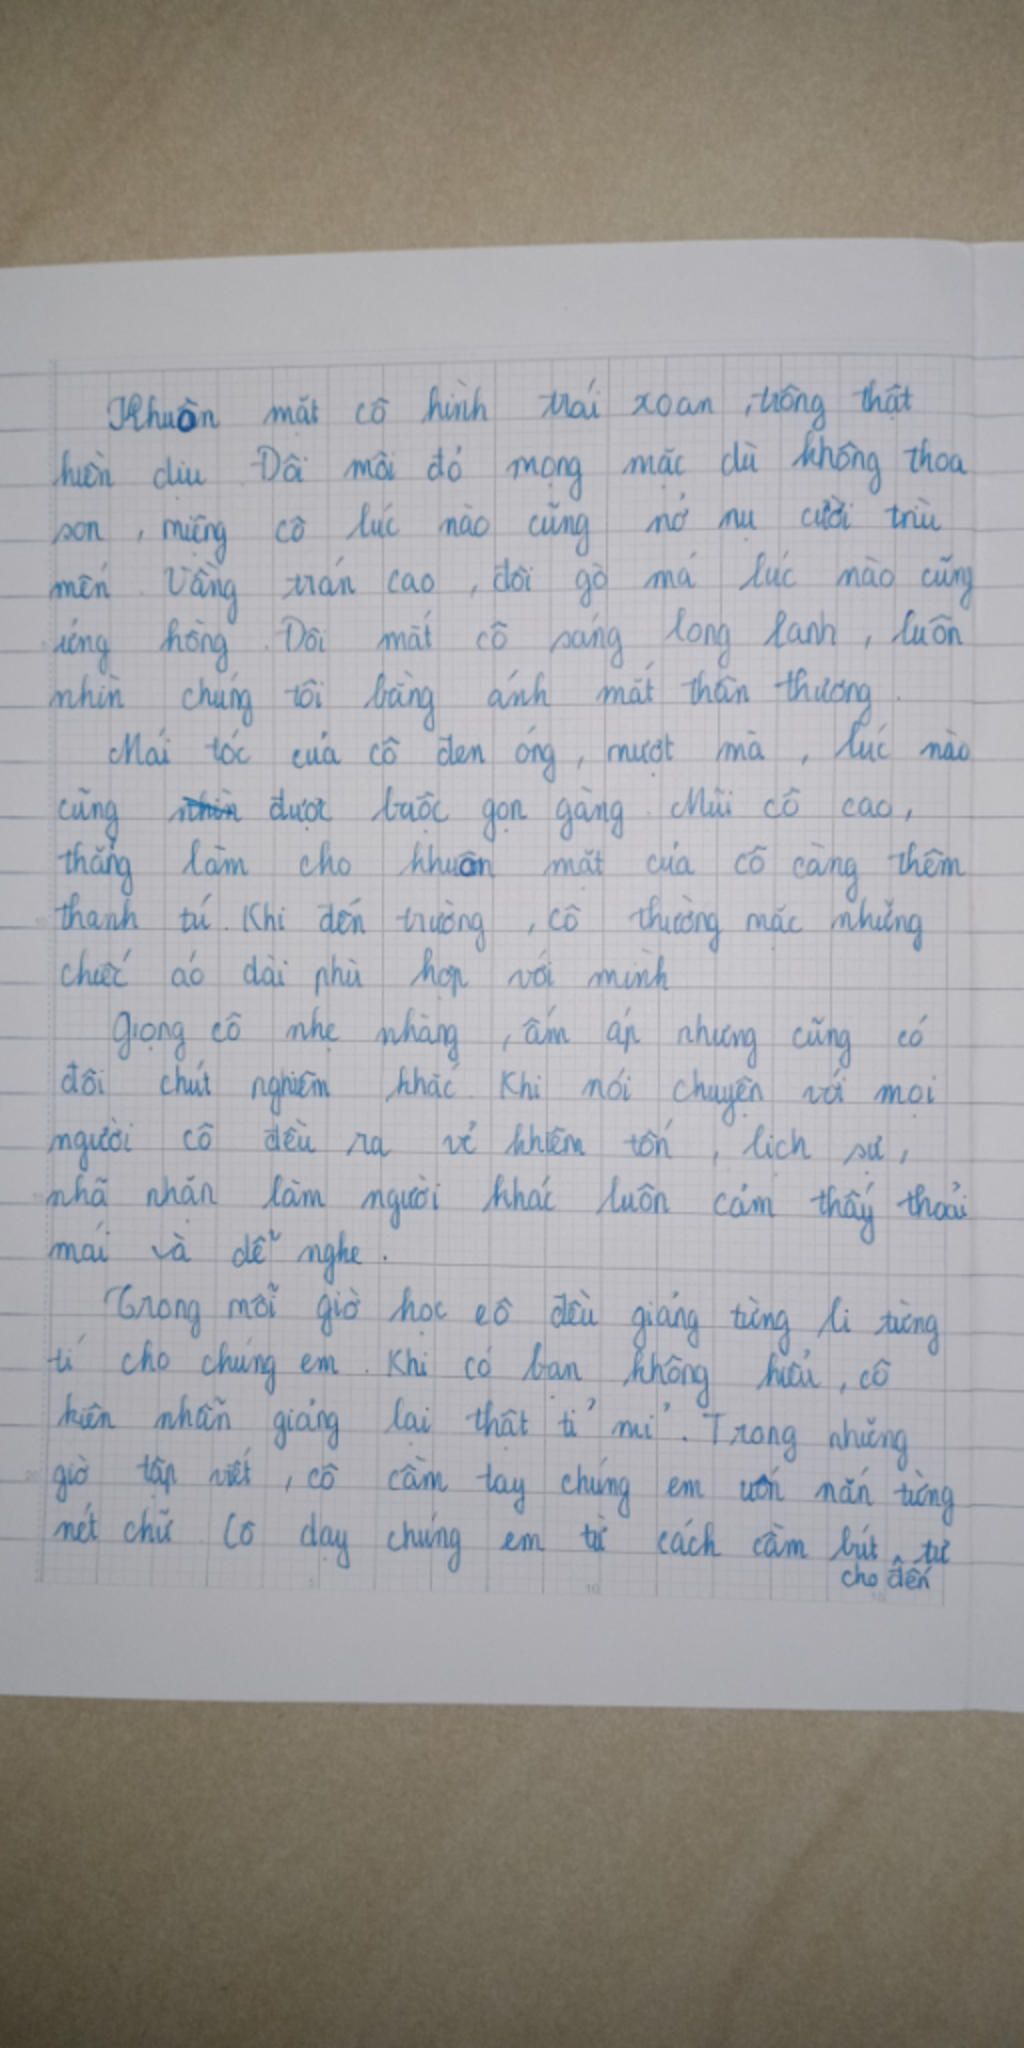 Khuôn mặt cô hình trái xoan, trông thật
hiền dịu. Đôi môi đỏ mọng mặc dù không thoa
son, miệng cô lúc nào cũng nở nụ cười trìu
mến. Vầng trán cao, đôi gò má lúc nào cũng
ửng hồng. Đôi mắt cô sáng long lanh, luôn
nhìn chúng tôi bằng ánh mắt thân thương.
Mái tóc của cô đen óng, mượt mà, lúc nào
cũng được buộc gọn gàng. Mũi cô cao,
thẳng làm cho khuôn mặt của cô càng thêm
thanh tú. Khi đến trường, cô thường mặc những
chiếc áo dài phù hợp với mình
Giọng cô nhẹ nhàng, ấm áp nhưng cũng có
đôi chút nghiêm khắc. Khi nói chuyện với mọi
người cô đều ra vẻ khiêm tốn, lịch sự,
nhã nhặn làm người khác luôn cảm thấy thoải
mái và dễ nghe.
Trong mỗi giờ học cô đều giảng từng li từng
tí cho chúng em. Khi có bạn không hiểu, cô
kiên nhẫn giảng lại thật tỉ mỉ. Trong những
giờ tập viết, cô cầm tay chúng em uốn nắn từng
nét chữ Cô dạy chúng em từ cách cầm bút, tư
cho đến